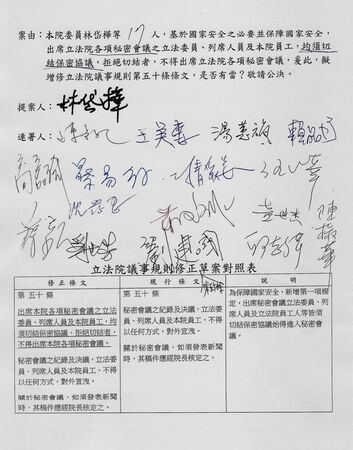 案由：本院委員林岱樺等17人，基於國家安全之必要並保障國家安全，
出席立法院各項秘密會議之立法委員、列席人員及本院員工，均須切
結保密協議，拒絕切結者，不得出席立法院各項秘密會議，爰此，擬
增修立法院議事規則第五十條條文，是否有當？敬請公決。
提案人：林岱樺
連署人：
王美惠
湯蕙禎
賴品妤
蔡易餘
立法院議事規則修正草案對照表
修正條文
現行條文
說明
第五十條
出席本院各項秘密會議之立法
委員、列席人員及本院員工，均
須切結保密協議，拒絕切結者，
不得出席本院各項秘密會議。
秘密會議之紀錄及決議，立法委
員、列席人員及本院員工，不得
以任何方式，對外宣洩。
關於秘密會議，如須發表新聞
時，其稿件應經院長核定之。
第五十條
秘密會議之紀錄及決議，立法委
員、列席人員及本院員工，不得
以任何方式，對外宣洩。
關於秘密會議，如須發表新聞
時，其稿件應經院長核定之。
為保障國家安全，新增第一項規
定，出席秘密會議立法委員、列
席人員及立法院員工人等皆須
切結保密協議始得進入秘密會
議。